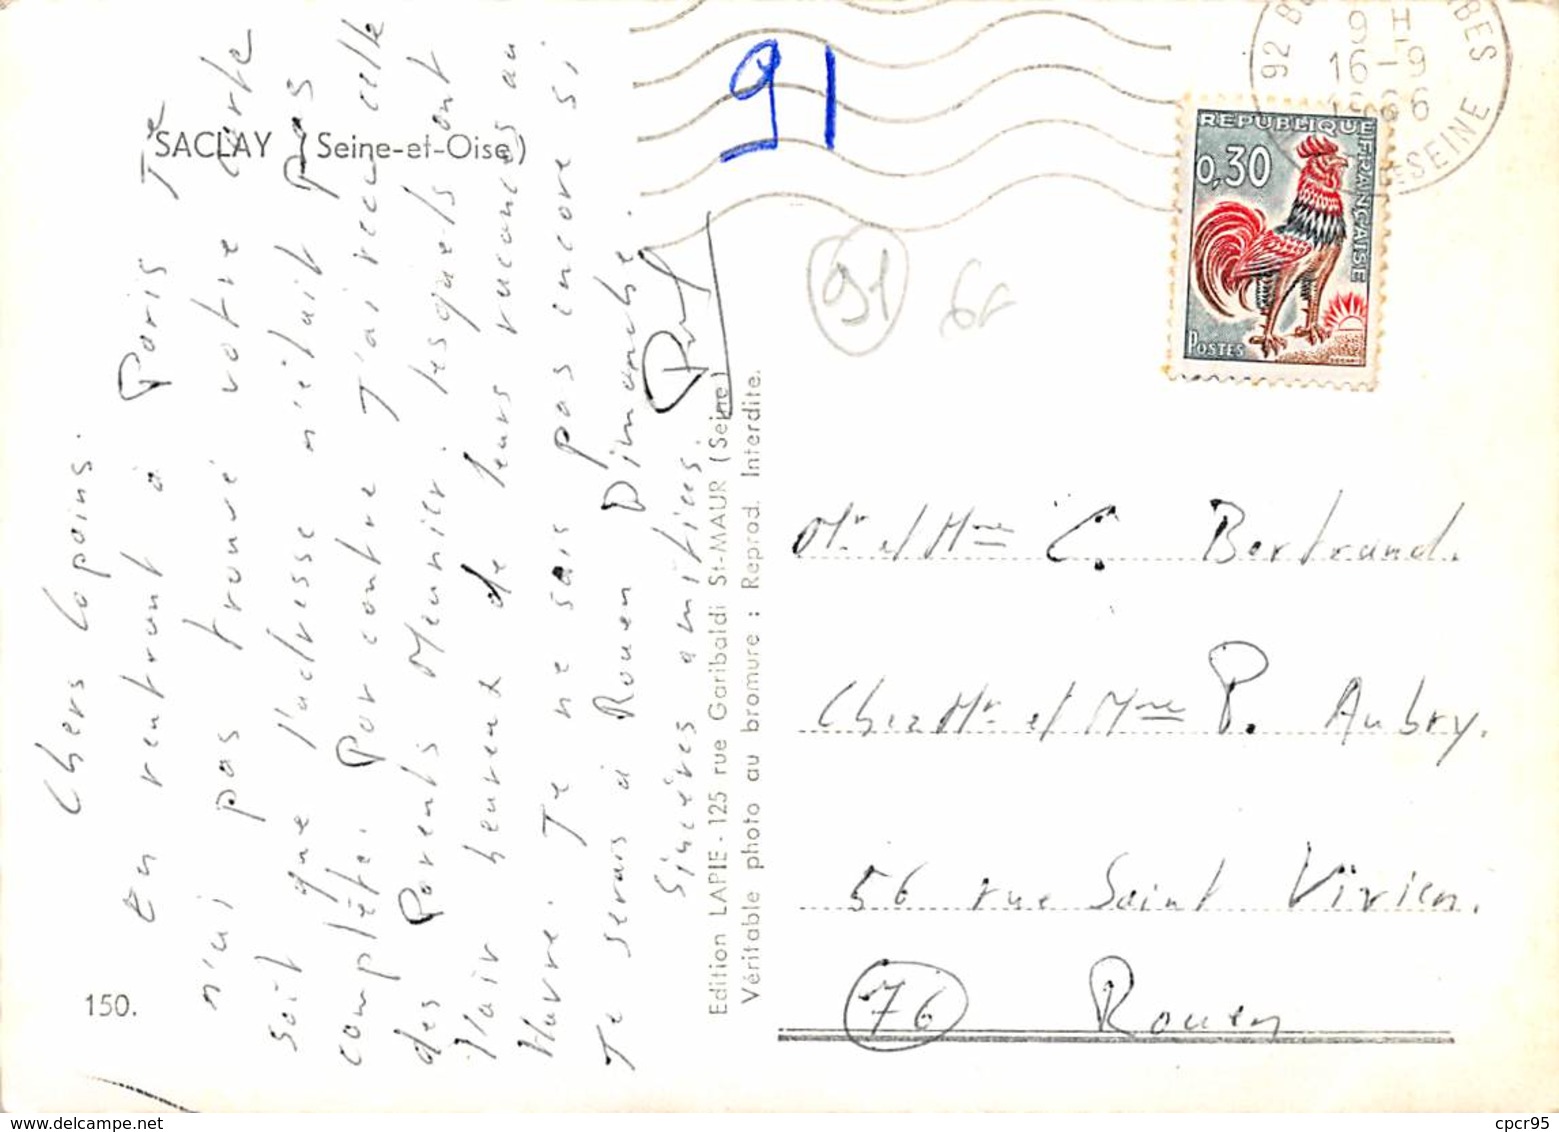 SACLAY (Seine-et-Oise)
Chers Copains.
En rentrant à Paris Je
n'ai pas trouvé votre carte
soit que l'adresse n'était pas
complète. Par contre J'ai reçu celle
des Parents Meunier. lesquels ont
l'air heureux de leurs vacances au
Havre. Je ne sais pas encore si
Je serais à Rouen Dimanche.
Sincères amitiés.
150.
Edition LAPIE - 125 rue Garibaldi St-MAUR (Seine)
Véritable photo au bromure : Reprod. Interdite.
91
91
92 B BES
9 H
16-9
1966
SEINE
REPUBLIQUE FRANÇAISE
0,30
POSTES
Mr et Mme C. Bertrand.
Chez Mr et Mme P. Aubry.
56 rue Saint Vivien.
76 Rouen
cpcr95